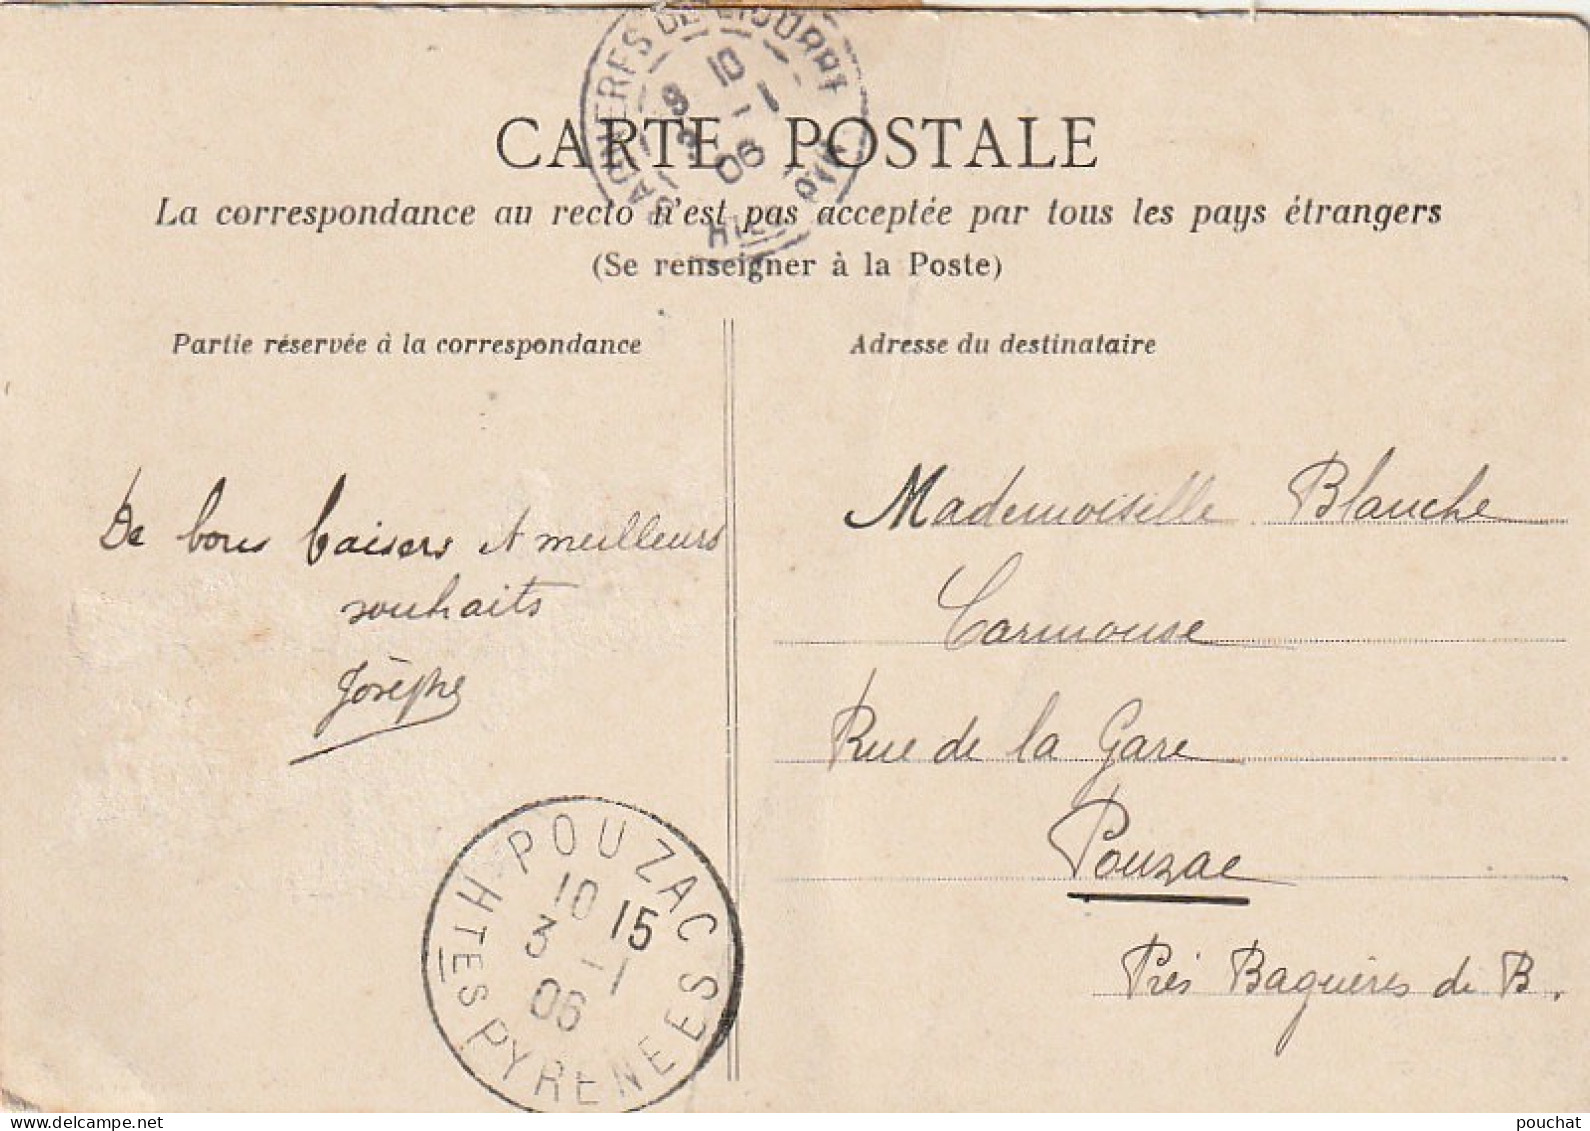 BAGNERES DE BIGORRE
8 10
3 - 1
06
CARTE POSTALE
La correspondance au recto n'est pas acceptée par tous les pays étrangers
(Se renseigner à la Poste)
Partie réservée à la correspondance
Adresse du destinataire
De bons baisers et meilleurs
souhaits
Josèphe
Mademoiselle Blanche
Carmouse
Rue de la Gare
Pouzac
Près Bagnères de B.
POUZAC
10 15
3 - 1
06
HTES PYRENEES
delcampe.net
pouchat